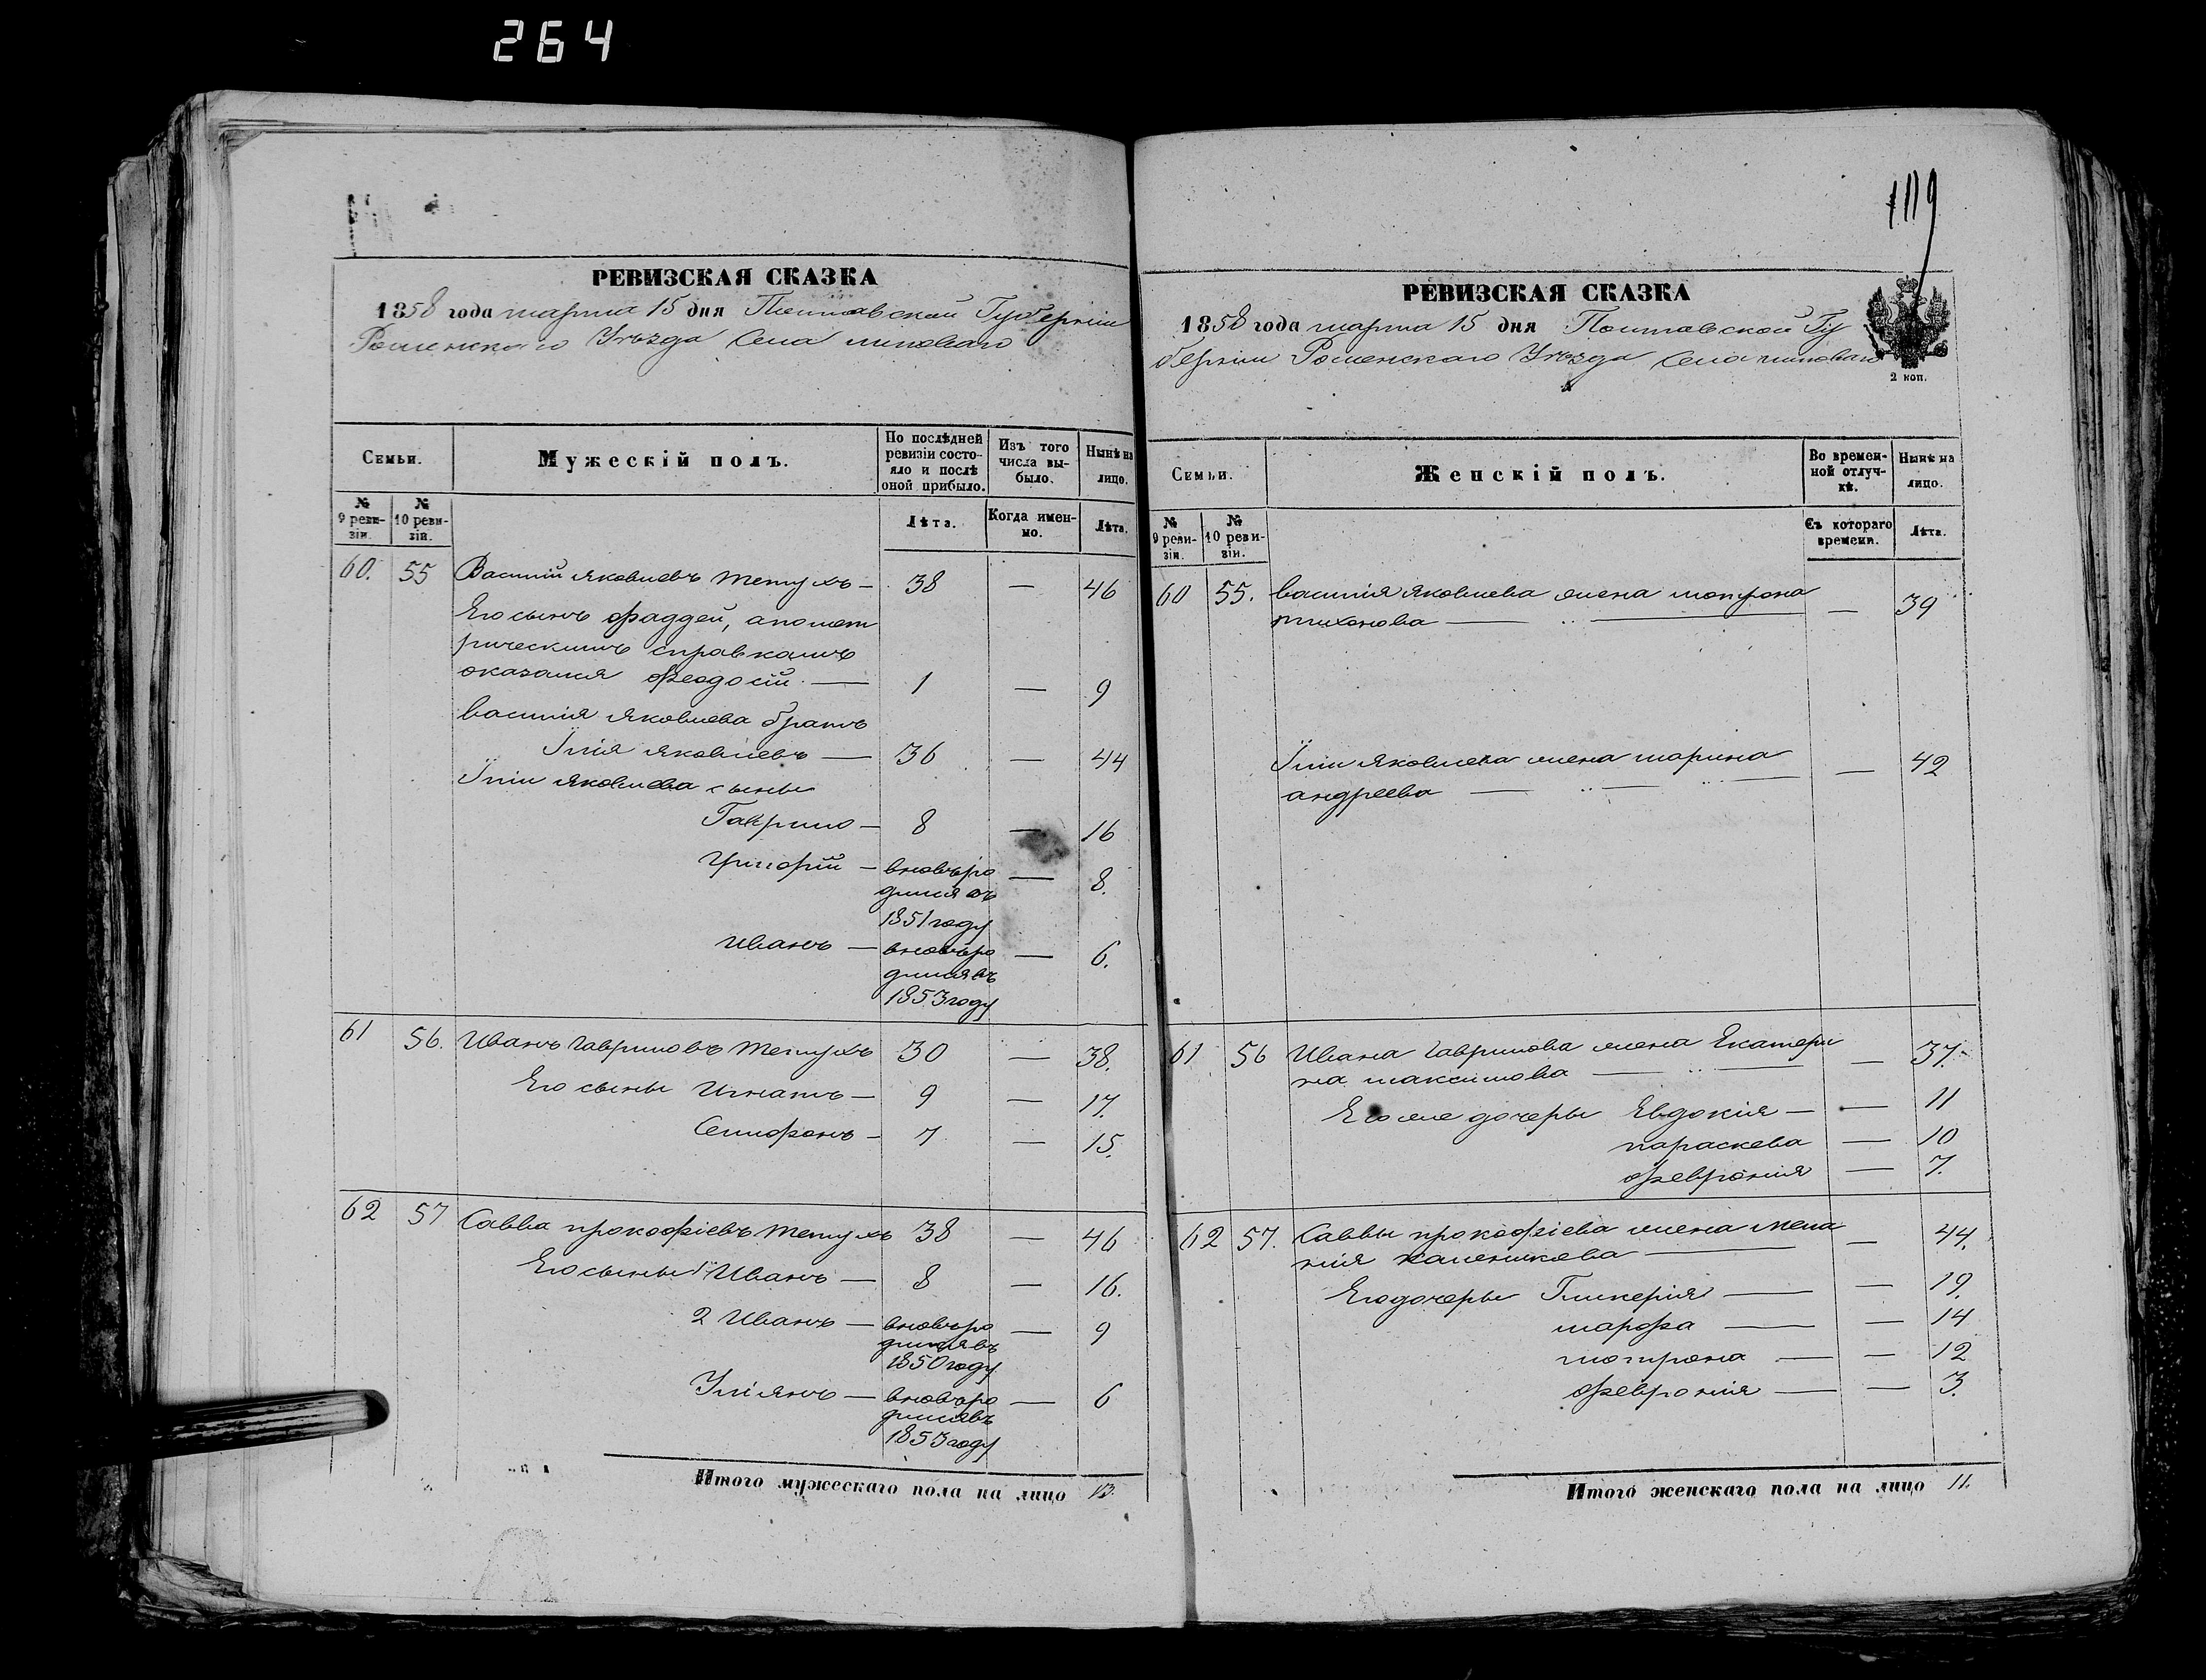 264
119
РЕВИЗСКАЯ СКАЗКА
1858 года марта 15 дня Полтавской Губерніи
Роменскаго Уѣзда Села липоваго
Семьи.
Мужескій полъ.
По послѣдней ревизіи состояло и послѣ оной прибыло.
Изъ того числа выбыло.
Нынѣ на лицо.
№ 9 ревизіи.
№ 10 ревизіи.
Лѣта.
Когда именно.
Лѣта.
60. 55 Василій Яковлевъ Тетухъ — 38 — 46
Его сынъ Фаддей, апомет
рическимъ справкамъ
оказался Феодосій — 1 — 9
василія Яковлева братъ
Ілія Яковлевъ — 36 — 44
Іліи Яковлева сыны
Гаврило — 8 — 16
Григорій — вновь ро — 8.
дился въ
1851 году
Иванъ — вновь ро — 6.
дился въ
1853 году
61 56. Иванъ Гавриловъ Тетухъ 30 — 38.
Его сыны Игнатъ — 9 — 17.
Селифонъ — 7 — 15.
62 57 Савва прокофіевъ Тетухъ 38 — 46
Его сыны 1й Иванъ — 8 — 16.
2 Иванъ — вновь ро — 9
дился въ
1850 году
Уліянъ — вновь ро — 6
дился въ
1853 году
Итого мужескаго пола на лицо 13.
РЕВИЗСКАЯ СКАЗКА
1858 года марта 15 дня Полтавской Гу
берніи Роменскаго Уѣзда Села липоваго
2 коп.
Семьи.
Женскій полъ.
Во временной отлучкѣ.
Нынѣ на лицо.
№ 9 ревизіи.
№ 10 ревизіи.
Съ котораго времени.
Лѣта.
60 55. василія Яковлева жена мотрона
тихонова — — 39
Іліи Яковлева жена марина
андреева — — 42
61 56 Ивана Гаврилова жена Екатери
на максимова — — 37.
Его же дочеры Евдокія — — 11
параскева — 10
феВронія — 7.
62 57. Саввы прокофіева жена Мела
нія каленикова — — 44.
Его дочеры Гликерія — — 19.
марфа — — 14
мотрона — — 12
феВронія — — 3.
Итого женскаго пола на лицо 11.